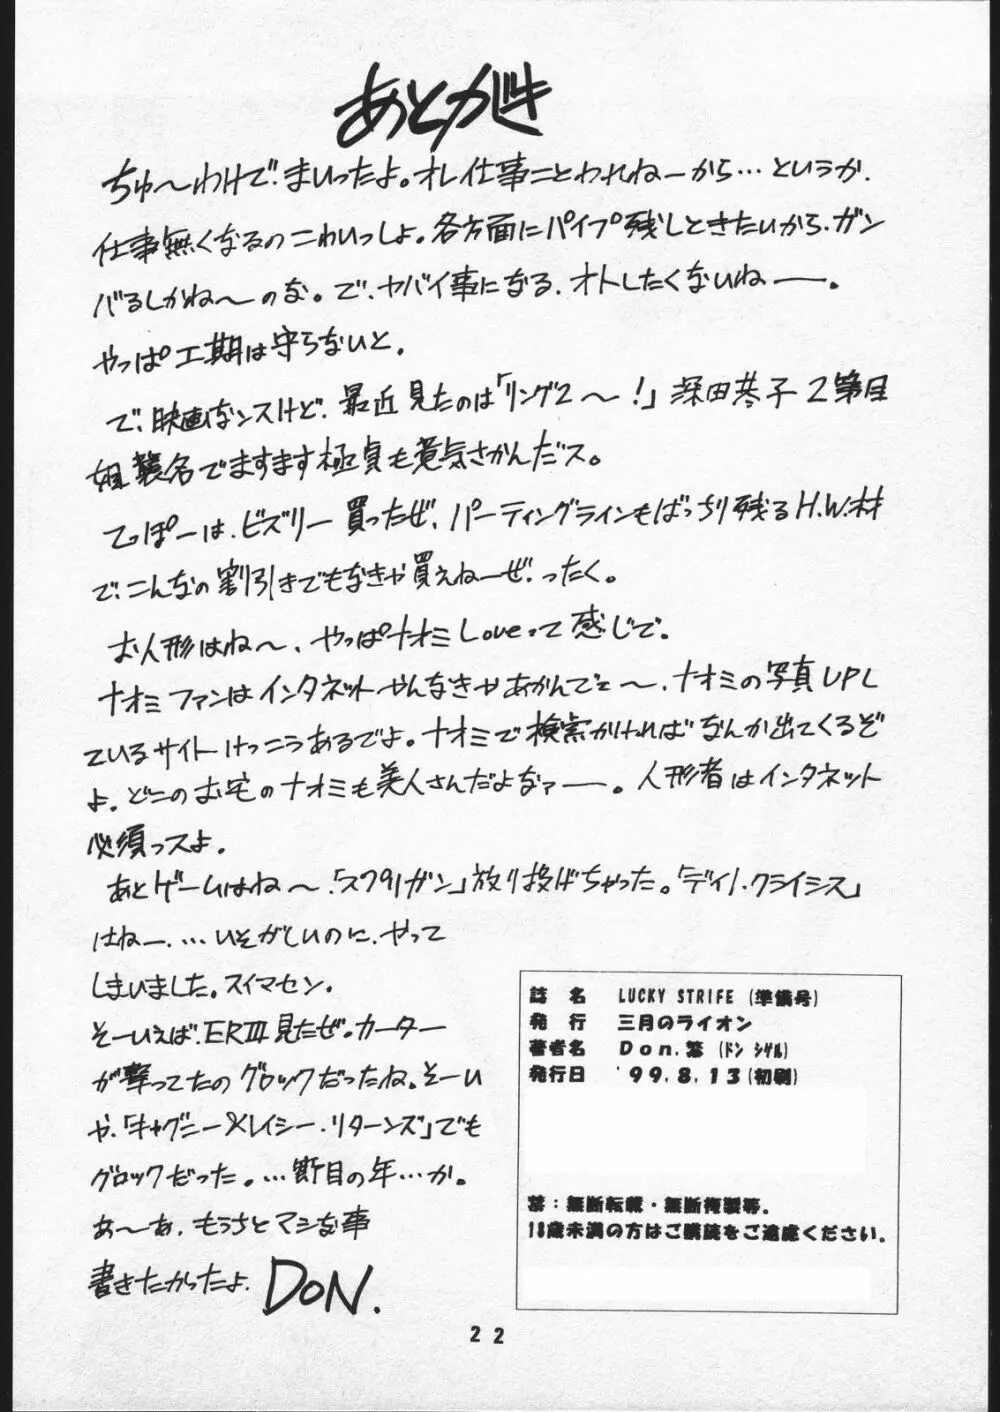 あとがき
ちゅ〜わけで、まいったよ。オレ仕事ことわれねーから…というか、
仕事無くなるのこわいっしょ。各方面にパイプ残しときたいから、ガン
バるしかね〜のな。で、ヤバイ事になる、オトしたくないねー。
やっぱ工期は守らないと。
で、映画なンスけど、最近見たのは「リング2〜!」深田恭子2第目
襲名でますます極貞も意気さかんだス。
てっぽーは、ビズリー買ったぜ、パーティングラインもばっちり残るH.W.材
で、こんなの割引きでもなきゃ買えねーぜ、ったく。
お人形はね〜、やっぱナオミLoveって感じで。
ナオミファンはインタネットやんなきゃあかんでェ〜、ナオミの写真UPし
ているサイトけっこうあるでよ。ナオミで検索かければなんか出てくるぞ
よ。どこのお宅のナオミも美人さんだよなァー。人形者はインタネット
必須っスよ。
あとゲームはね〜、「スプリガン」放り投げちゃった。「ディノ・クライシス」
はねー、…いそがしいのに、やって
しまいました。スイマセン。
そーいえば、ERⅢ見たぜ。カーター
が奪ってたのグロックだったね。そーい
や、「キャグニー×レイシー・リターンズ」でも
グロックだった。…節目の年…か。
あ〜あ、もうちとマシな事
書きたかったよ。DON.
誌 名 LUCKY STRIFE (準備号)
発 行 三月のライオン
著者名 Don.繁 (ドン シゲル)
発行日 '99.8.13(初刷)
禁:無断転載・無断複製等。
18歳未満の方はご購読をご遠慮ください。
22